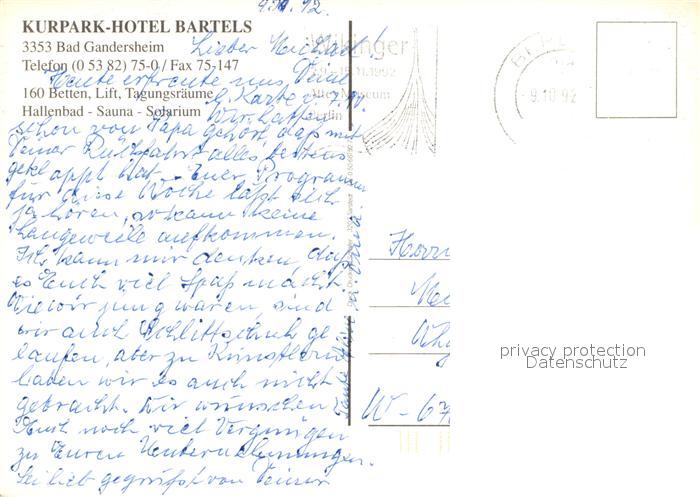 9.10.92.
KURPARK-HOTEL BARTELS
3353 Bad Gandersheim
Telefon (0 53 82) 75-0 / Fax 75-147
160 Betten, Lift, Tagungsräume
Hallenbad - Sauna - Solarium
Lieber Michael!
Heute erfreute uns Deine
Karte v. 7.10.
Wir hatten
schon von Papa gehört, daß mit
Deiner Rückfahrt alles bestens
geklappt hat. Euer Programm
für diese Woche läßt sich
ja hören, so kann keine
Langeweile aufkommen.
Ich kann mir denken daß
es Euch viel Spaß macht.
Wie wir jung waren, sind
wir auch Schlittschuh ge-
laufen, aber zu Künstlern
haben wir es auch nicht
gebracht. Wir wünschen
Euch noch viel Vergnügen
zu Euren Unternehmungen.
Sei lieb gegrüßt von Deiner
Tante
Wikinger
1992
Altes Museum
Berlin
9.10.92
Herrn
W-67
privacy protection
Datenschutz